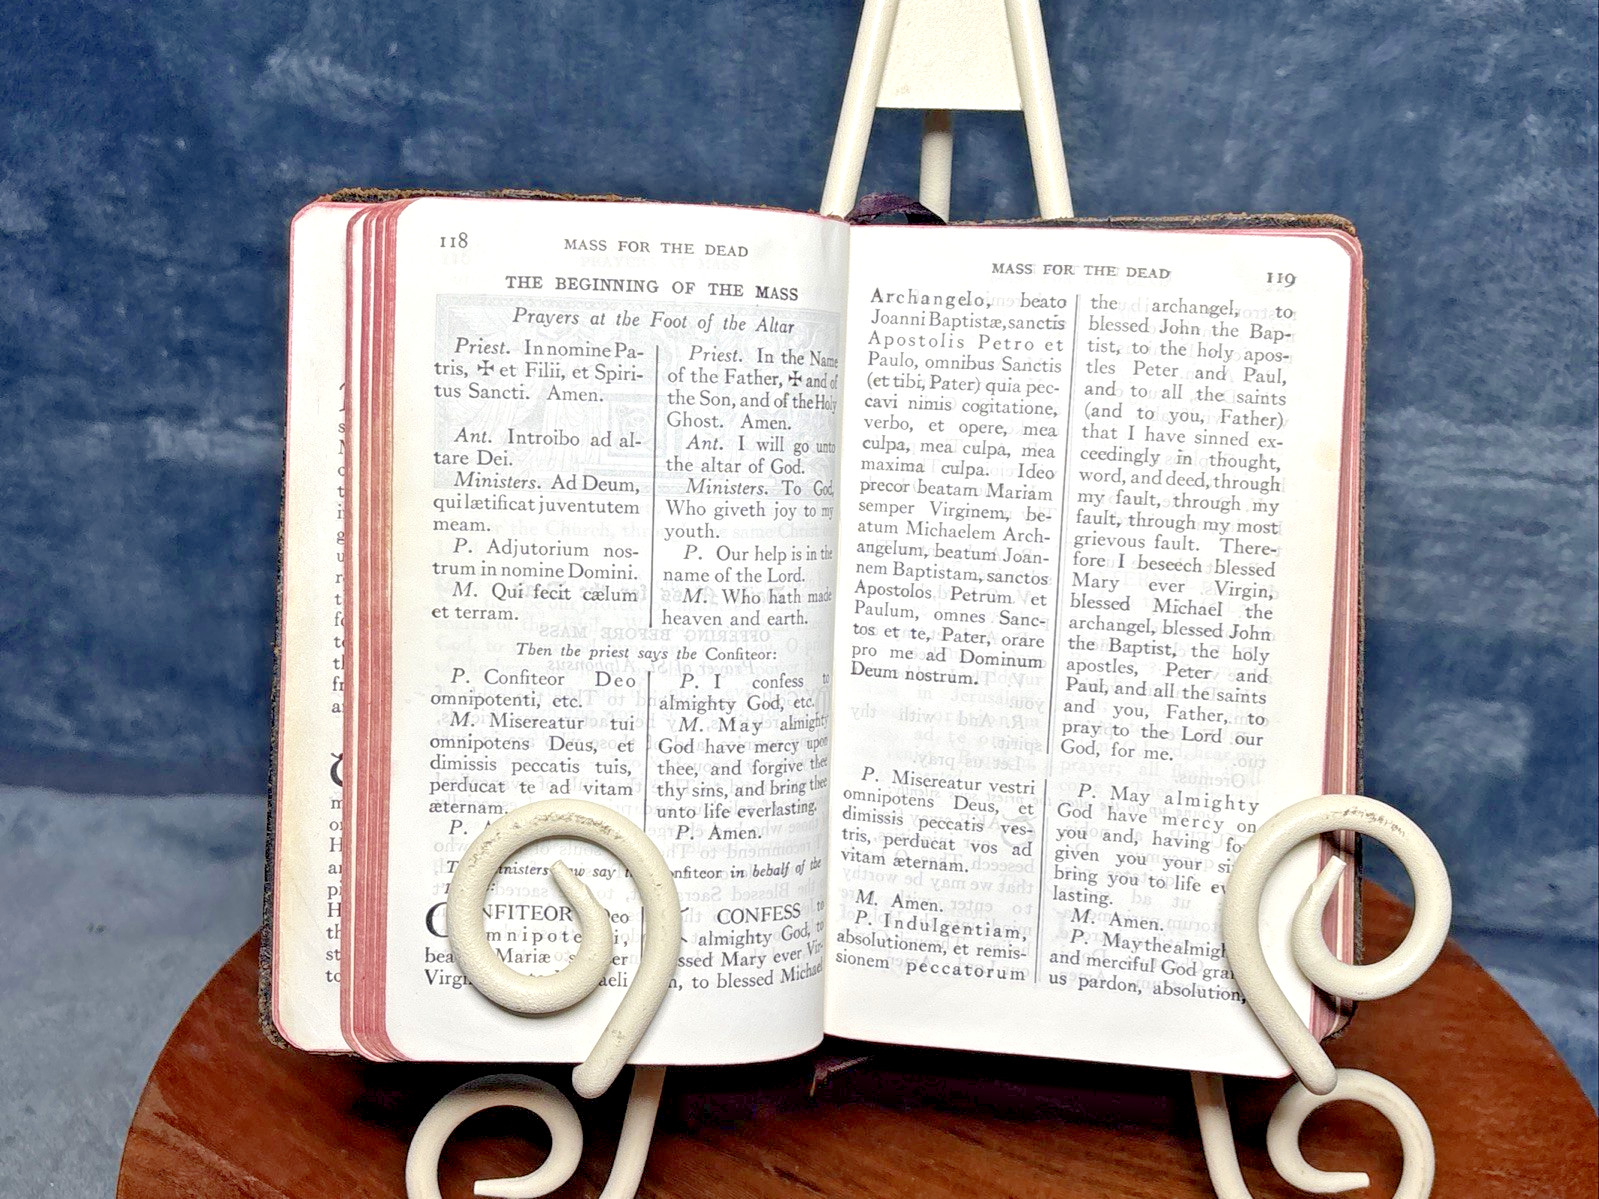 118
MASS FOR THE DEAD
THE BEGINNING OF THE MASS
Prayers at the Foot of the Altar
Priest. In nomine Pa-
tris, ✠ et Filii, et Spiri-
tus Sancti. Amen.
Ant. Introibo ad al-
tare Dei.
Ministers. Ad Deum,
qui lætificat juventutem
meam.
P. Adjutorium nos-
trum in nomine Domini.
M. Qui fecit cælum
et terram.
Priest. In the Name
of the Father, ✠ and of
the Son, and of the Holy
Ghost. Amen.
Ant. I will go unto
the altar of God.
Ministers. To God,
Who giveth joy to my
youth.
P. Our help is in the
name of the Lord.
M. Who hath made
heaven and earth.
Then the priest says the Confiteor:
P. Confiteor Deo
omnipotenti, etc.
M. Misereatur tui
omnipotens Deus, et
dimissis peccatis tuis,
perducat te ad vitam
æternam.
P.
P. I confess to
almighty God, etc.
M. May almighty
God have mercy upon
thee, and forgive thee
thy sins, and bring thee
unto life everlasting.
P. Amen.
say in behalf of the
Deo
Mariæ
CONFESS to
almighty God, to
Mary ever Vir-
to blessed Michael
MASS FOR THE DEAD
119
Archangelo, beato
Joanni Baptistæ, sanctis
Apostolis Petro et
Paulo, omnibus Sanctis
(et tibi, Pater) quia pec-
cavi nimis cogitatione,
verbo, et opere, mea
culpa, mea culpa, mea
maxima culpa. Ideo
precor beatam Mariam
semper Virginem, be-
atum Michaelem Arch-
angelum, beatum Joan-
nem Baptistam, sanctos
Apostolos Petrum et
Paulum, omnes Sanc-
tos et te, Pater, orare
pro me ad Dominum
Deum nostrum.
P. Misereatur vestri
omnipotens Deus, et
dimissis peccatis ves-
tris, perducat vos ad
vitam æternam.
M. Amen.
P. Indulgentiam,
absolutionem, et remis-
sionem peccatorum
the archangel, to
blessed John the Bap-
tist, to the holy apos-
tles Peter and Paul,
and to all the saints
(and to you, Father)
that I have sinned ex-
ceedingly in thought,
word, and deed, through
my fault, through my
fault, through my most
grievous fault. There-
fore I beseech blessed
Mary ever Virgin,
blessed Michael the
archangel, blessed John
the Baptist, the holy
apostles, Peter and
Paul, and all the saints
and you, Father, to
pray to the Lord our
God, for me.
P. May almighty
God have mercy on
you and, having for
given you your
bring you to life
lasting.
M. Amen.
P. May the
and merciful God
us pardon, absolution,